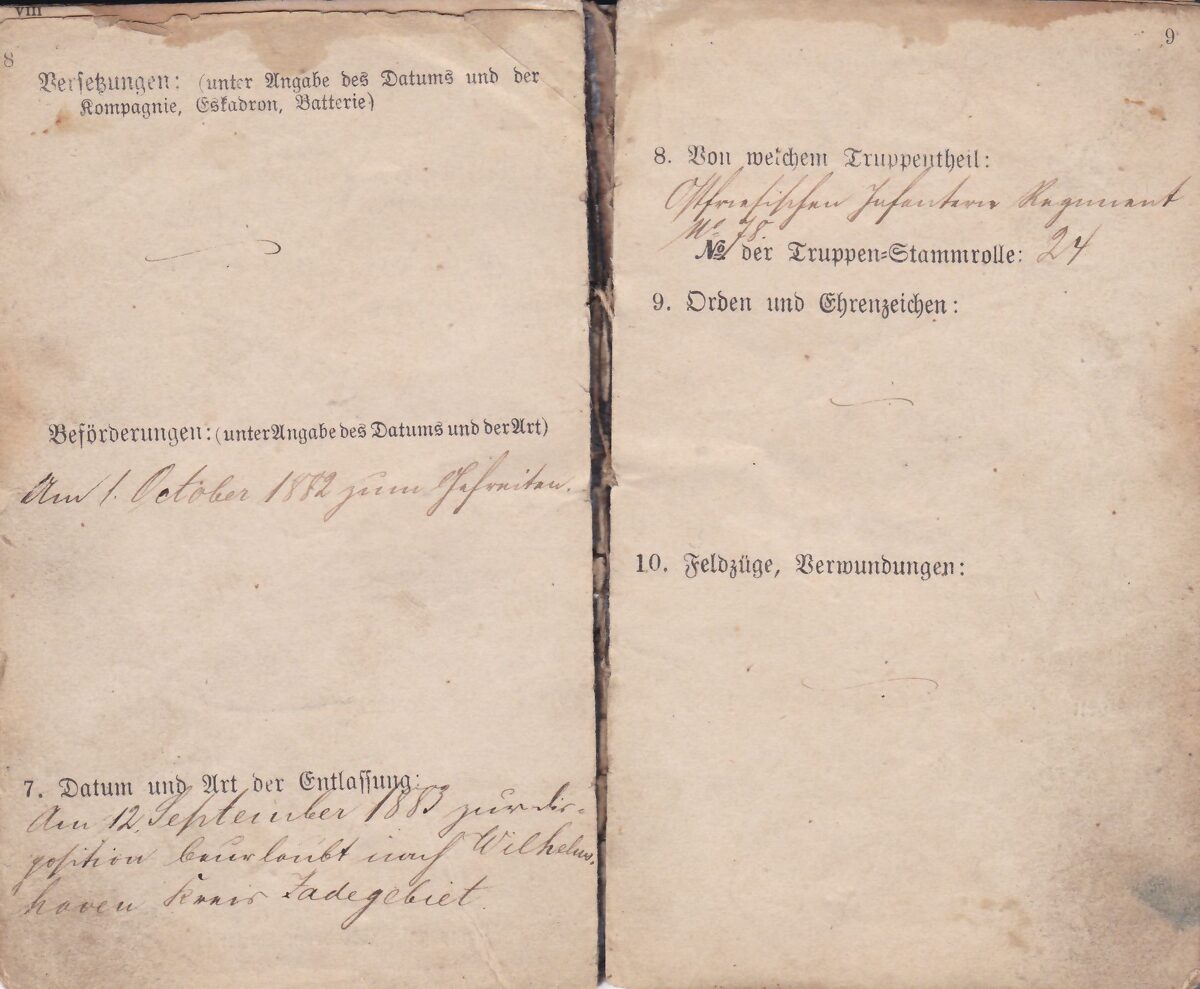 VIII
8
Versetzungen: (unter Angabe des Datums und der
Kompagnie, Eskadron, Batterie)
Beförderungen: (unter Angabe des Datums und der Art)
Am 1. October 1882 zum Gefreiten.
7. Datum und Art der Entlassung:
Am 12. September 1883 zur Dis-
position beurlaubt nach Wilhelms-
haven Kreis Jadegebiet.
9
8. Von welchem Truppentheil:
Ostfriesischen Infanterie Regiment
No. 78.
No der Truppen-Stammrolle: 24
9. Orden und Ehrenzeichen:
10. Feldzüge, Verwundungen: